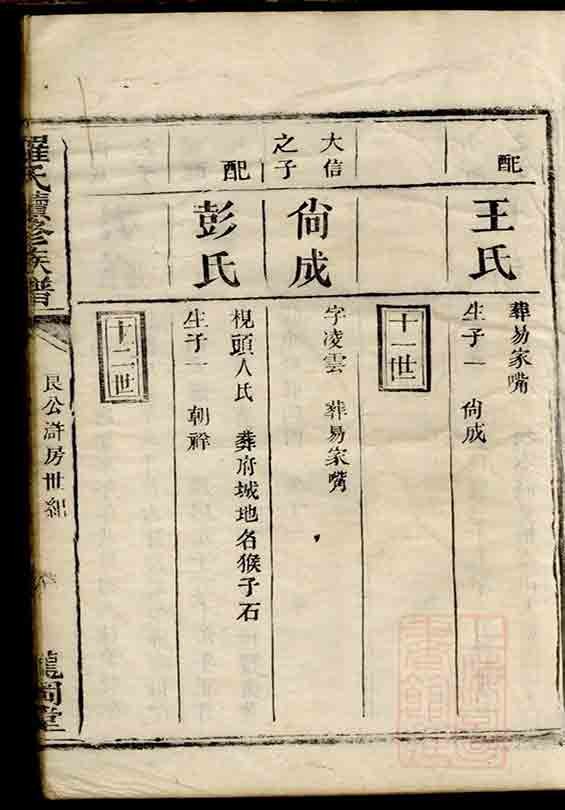 配
王氏
葬易家嘴
生子一 尙成
十一世
大信
之子
尙成
字凌雲 葬易家嘴
配
彭氏
梘頭人氏 葬府城地名猴子石
生子一 朝祥
十二世
羅氏續修族譜
艮公滸房世紀